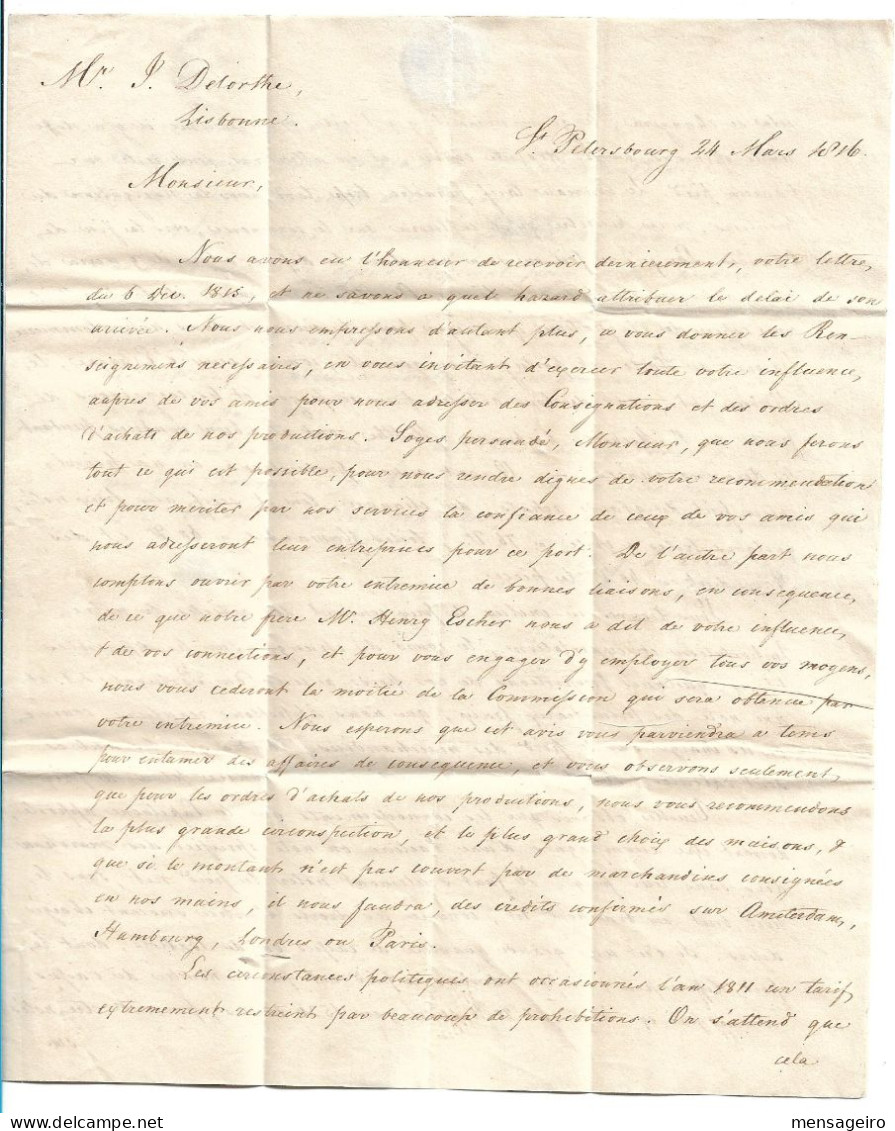 Mr. J. Delorthe,
Lisbonne.
St Petersbourg 24 Mars 1816.
Monsieur,
Nous avons eu l'honneur de recevoir dernierement, votre lettre,
du 6 Dec. 1815, et ne savons a quel hazard attribuer le delai de son
arrivée. Nous nous empressons d'autant plus, a vous donner les Ren-
seignemens necessaires, en vous invitant d'exercer toute votre influence,
aupres de vos amis pour nous adresser des Consignations et des ordres
d'achats de nos productions. Soyes persuadé, Monsieur, que nous ferons
tout ce qui est possible, pour nous rendre dignes de votre recommendation
et pour meriter par nos services la confiance de ceux de vos amis qui
nous adresseront leur entreprises pour ce port. De l'autre part nous
comptons ouvrir par votre entremise de bonnes liaisons, en consequence,
de ce que notre frere Mr. Henry Escher nous a dit de votre influence,
& de vos connections, et pour vous engager d'y employer tous vos moyens,
nous vous cederont la moitié de la Commission qui sera obtenue par
votre entremise. Nous esperons que cet avis vous parviendra a tems
pour entamer des affaires de consequence, et vous observons seulement,
que pour les ordres d'achats de nos productions, nous vous recommendons
la plus grande circonspection, et le plus grand choix des maisons, &
que si le montant n'est pas couvert par de marchandises consignées
en nos mains, il nous faudra, des credits confirmés sur Amsterdam,
Hambourg, Londres ou Paris.
Les circonstances politiques ont occasionnés l'an 1811 un tarif,
extremement restreint par beaucoup de prohibitions. On s'attend que
cela
mensageiro